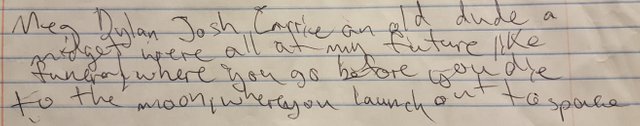 Meg Dylan Josh Carrie an old dude a
midget were all at my future like
funeral, where you go before you die
to the moon, where you launch out to space